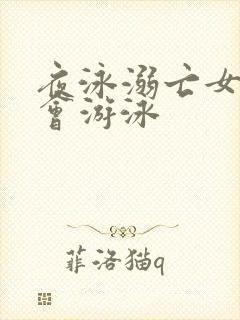 夜泳溺亡女
会游泳
菲洛猫q